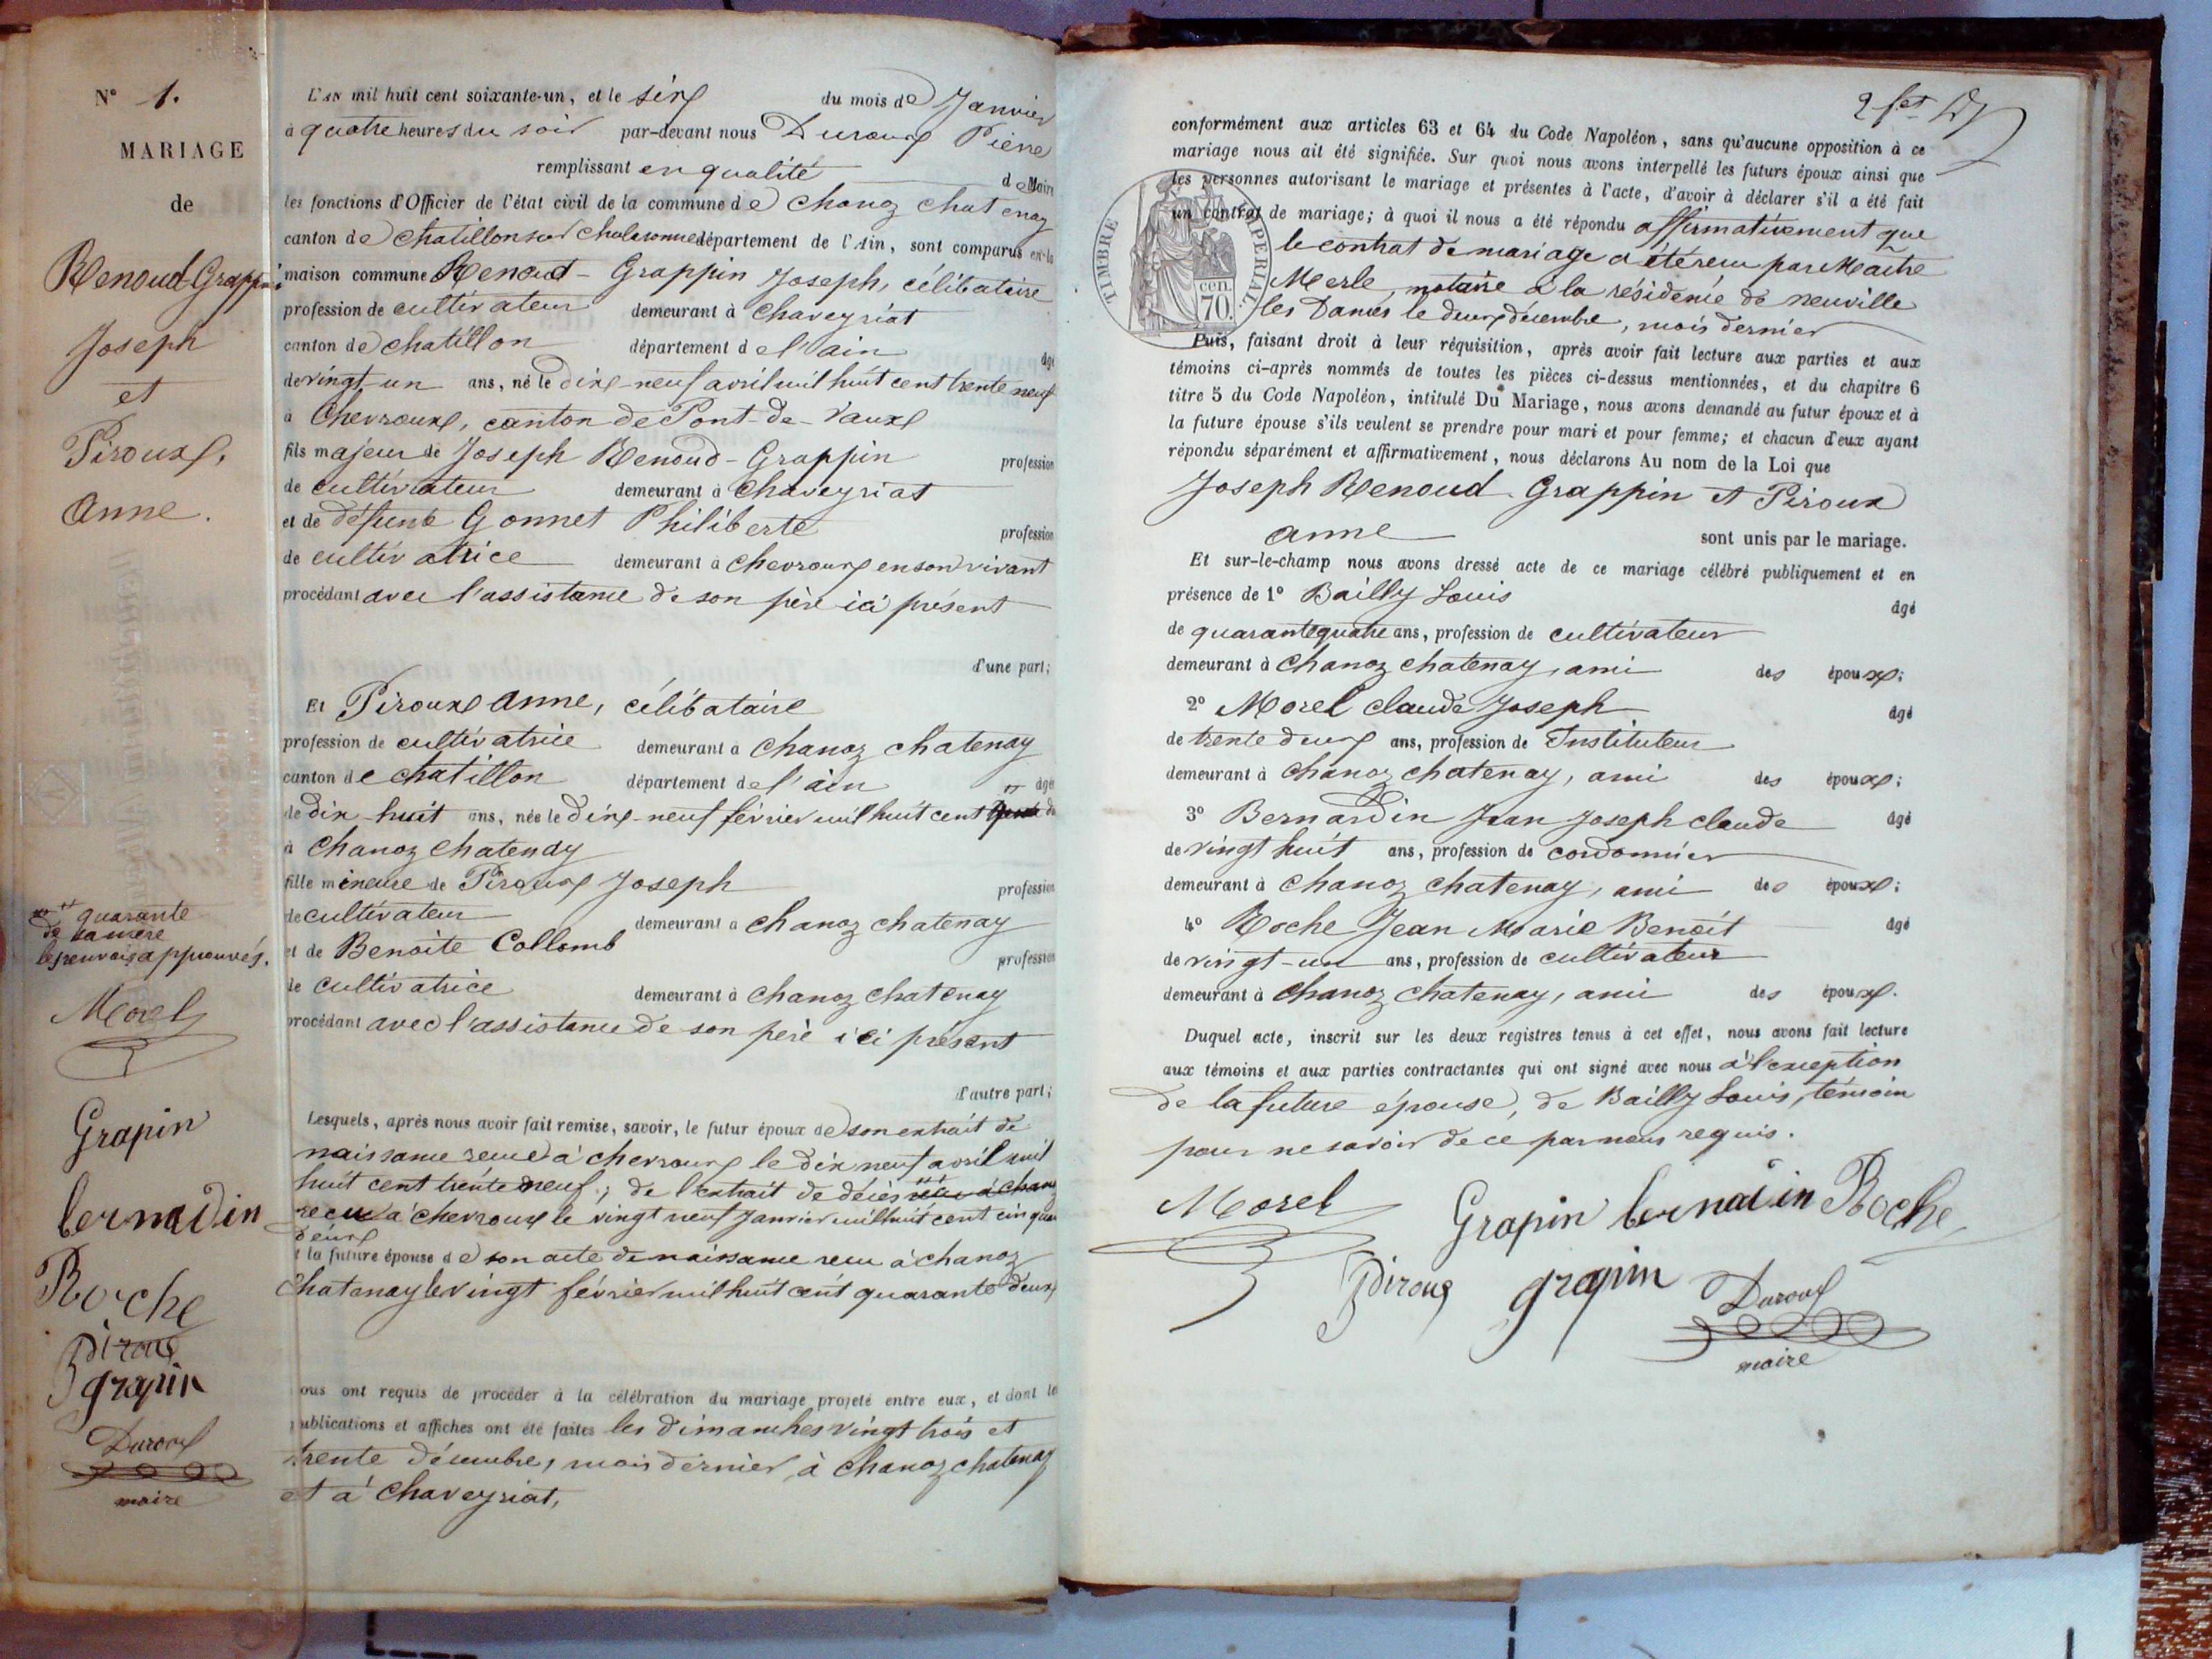 N° 1.
MARIAGE
de
Renoud-Grappin
Joseph
et
Piroux,
Anne.
quarante
de sa mère
approuvés.
Morel
Grapin
bernardin
Roche
Piroux
grapin
Duroux
maire
L'AN mil huit cent soixante-un, et le six du mois de Janvier
à quatre heures du soir par-devant nous Duroux Pierre
remplissant en qualité de Maire
les fonctions d'Officier de l'état civil de la commune de Chanoz Chatenay
canton de Chatillon sur Chalaronne département de l'Ain, sont comparus en la
maison commune Renoud-Grappin Joseph, célibataire
profession de cultivateur demeurant à Chaveyriat
canton de chatillon département de l'ain âgé
de vingt-un ans, né le dix-neuf avril mil huit cent trente neuf
à Chevroux, canton de Pont-de-Vaux
fils majeur de Joseph Renoud-Grappin profession
de cultivateur demeurant à Chaveyriat
et de défunte Gonnet Philiberte profession
de cultivatrice demeurant à Chevroux en son vivant
procédant avec l'assistance de son père ici présent
d'une part;
Et Piroux Anne, célibataire
profession de cultivatrice demeurant à Chanoz chatenay
canton de chatillon département de l'ain âgée
de dix-huit ans, née le dix-neuf février mil huit cent
à Chanoz Chatenay
fille mineure de Piroux Joseph profession
de cultivateur demeurant à Chanoz chatenay
et de Benoite Collomb profession
de cultivatrice demeurant à Chanoz Chatenay
procédant avec l'assistance de son père ici présent
d'autre part;
Lesquels, après nous avoir fait remise, savoir, le futur époux de son extrait de
naissance reçu à chevroux le dix neuf avril mil
huit cent trente neuf; de l'extrait de décès
reçu à chevroux le vingt neuf Janvier mil huit cent cinquan
deux
et la future épouse de son acte de naissance reçu à chanoz
Chatenay le vingt février mil huit cent quarante deux
nous ont requis de procéder à la célébration du mariage projeté entre eux, et dont les
publications et affiches ont été faites les dimanches vingt trois et
trente décembre, mois dernier, à Chanoz chatenay
et à Chaveyriat,
conformément aux articles 63 et 64 du Code Napoléon, sans qu'aucune opposition à ce
mariage nous ait été signifiée. Sur quoi nous avons interpellé les futurs époux ainsi que
les personnes autorisant le mariage et présentes à l'acte, d'avoir à déclarer s'il a été fait
un contrat de mariage; à quoi il nous a été répondu affirmativement que
le contrat de mariage a été reçu par Maître
Merle, notaire à la résidence de neuville
les Dames le deux décembre, mois dernier
TIMBRE IMPERIAL
70 cen.
Puis, faisant droit à leur réquisition, après avoir fait lecture aux parties et aux
témoins ci-après nommés de toutes les pièces ci-dessus mentionnées, et du chapitre 6
titre 5 du Code Napoléon, intitulé Du Mariage, nous avons demandé au futur époux et à
la future épouse s'ils veulent se prendre pour mari et pour femme; et chacun d'eux ayant
répondu séparément et affirmativement, nous déclarons Au nom de la Loi que
Joseph Renoud-Grappin et Piroux
anne sont unis par le mariage.
Et sur-le-champ nous avons dressé acte de ce mariage célébré publiquement et en
présence de 1° Bailly Louis âgé
de quarante quatre ans, profession de cultivateur
demeurant à Chanoz chatenay, ami des époux;
2° Morel claude Joseph âgé
de trente deux ans, profession de Instituteur
demeurant à Chanoz chatenay, ami des époux;
3° Bernardin Jean Joseph claude âgé
de vingt huit ans, profession de cordonnier
demeurant à Chanoz Chatenay, ami des époux;
4° Roche Jean Marie Benoit âgé
de vingt-un ans, profession de cultivateur
demeurant à Chanoz Chatenay, ami des époux.
Duquel acte, inscrit sur les deux registres tenus à cet effet, nous avons fait lecture
aux témoins et aux parties contractantes qui ont signé avec nous à l'exception
de la future épouse, de Bailly Louis, témoin
pour ne savoir de ce par nous requis.
Morel Grapin bernardin Roche
Piroux grapin Duroux
maire